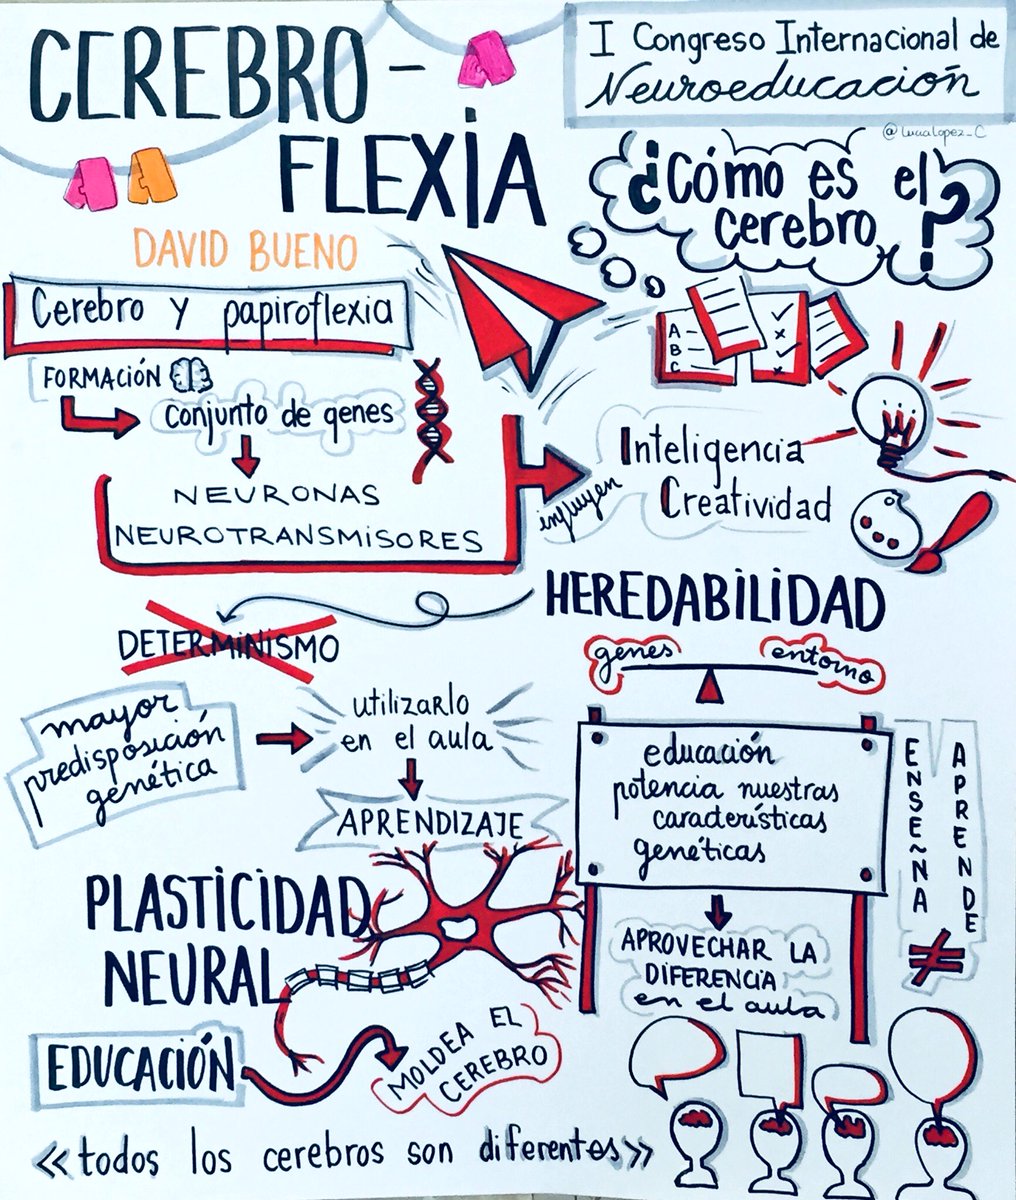 CEREBRO-
FLEXIA
I Congreso Internacional de
Neuroeducación
@LuciaLopez_C
DAVID BUENO
¿Cómo es el
cerebro?
Cerebro y papiroflexia
FORMACIÓN
conjunto de genes
NEURONAS
NEUROTRANSMISORES
influyen
A
B
C
Inteligencia
Creatividad
HEREDABILIDAD
genes
entorno
DETERMINISMO
mayor
predisposición
genética
utilizarlo
en el aula
APRENDIZAJE
educación
potencia nuestras
características
genéticas
APROVECHAR LA
DIFERENCIA
en el aula
ENSEÑA
≠
APRENDE
PLASTICIDAD
NEURAL
EDUCACIÓN
MOLDEA EL
CEREBRO
«todos los cerebros son diferentes»